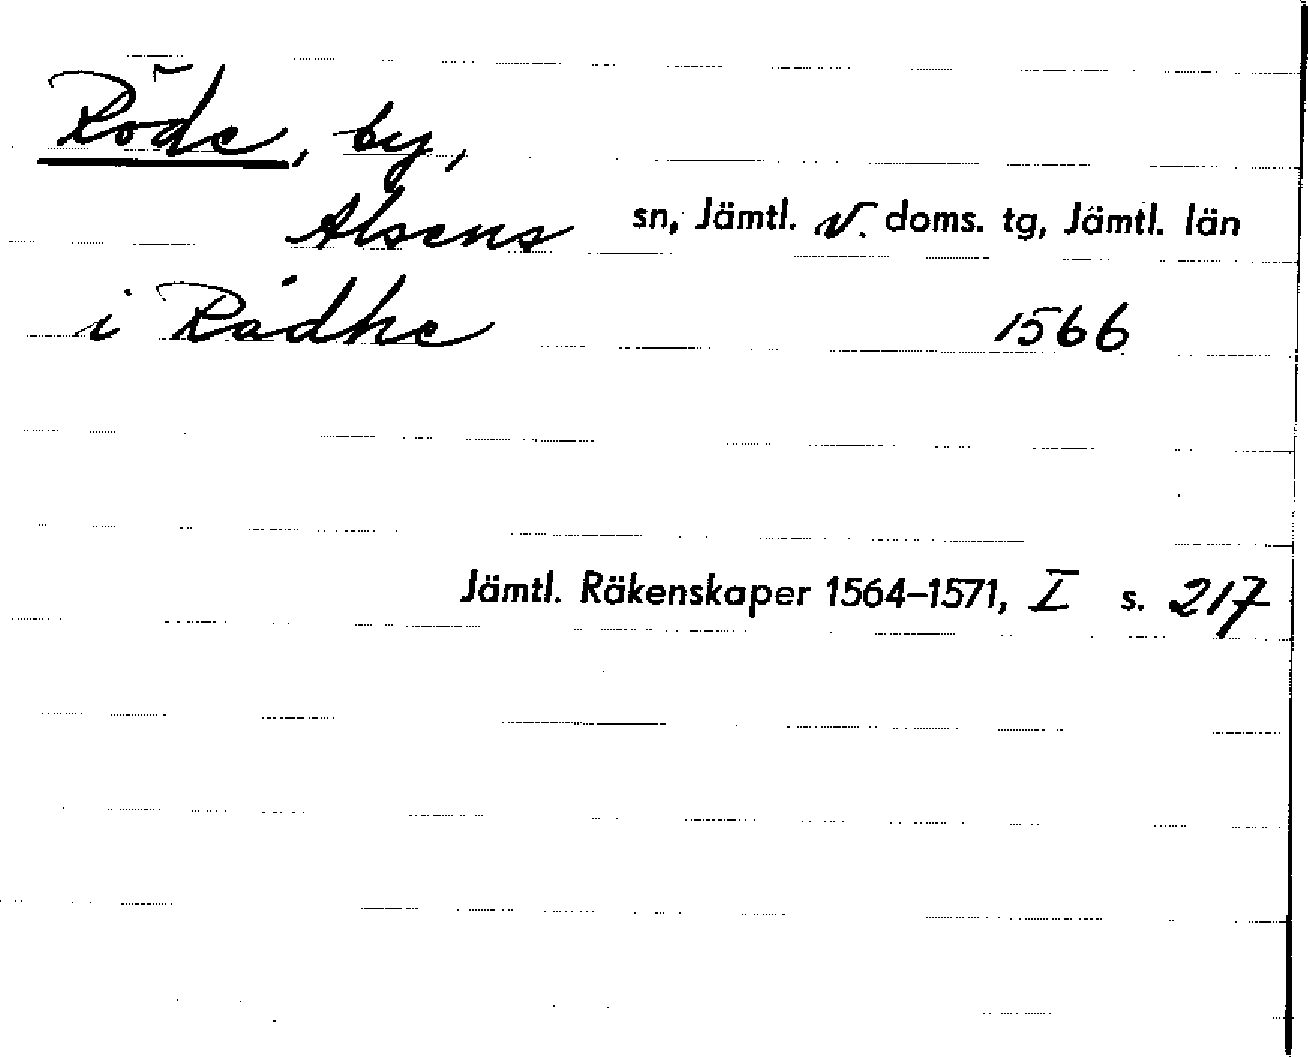 Röde, by,
Alsens sn, Jämtl. v. doms. tg, Jämtl. län
i Rådhe 1566
Jämtl. Räkenskaper 1564–1571, I s. 217